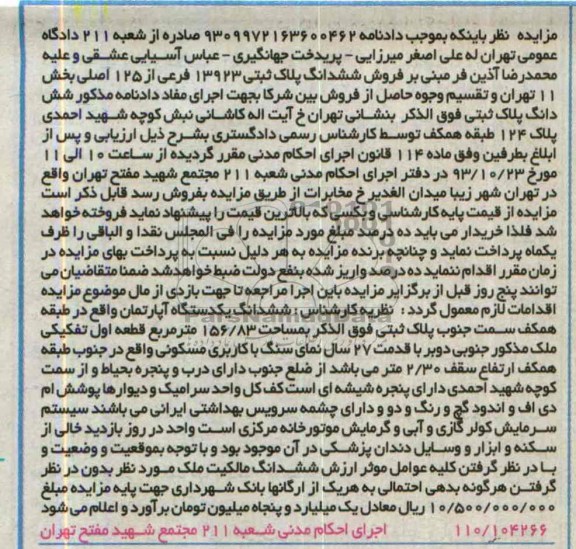 مزایده نظر باینکه بموجب دادنامه ۹۳۰۹۹۷۲۱۶۳۶۰۰۴۶۲ صادره از شعبه ۲۱۱ دادگاه
عمومی تهران له علی اصغر میرزایی - پریدخت جهانگیری - عباس آسیایی عشقی و علیه
محمدرضا آذین فر مبنی بر فروش ششدانگ پلاک ثبتی ۱۳۹۲۳ فرعی از ۱۲۵ اصلی بخش
۱۱ تهران و تقسیم وجوه حاصل از فروش بین شرکا بجهت اجرای مفاد دادنامه مذکور شش
دانگ پلاک ثبتی فوق الذکر بنشانی تهران خ آیت اله کاشانی نبش کوچه شهید احمدی
پلاک ۱۲۴ طبقه همکف توسط کارشناس رسمی دادگستری بشرح ذیل ارزیابی و پس از
ابلاغ بطرفین وفق ماده ۱۱۴ قانون اجرای احکام مدنی مقرر گردیده از ساعت ۱۰ الی ۱۱
مورخ ۹۳/۱۰/۲۳ در دفتر اجرای احکام مدنی شعبه ۲۱۱ مجتمع شهید مفتح تهران واقع
در تهران شهر زیبا میدان الغدیر خ مخابرات از طریق مزایده بفروش رسد قابل ذکر است
مزایده از قیمت پایه کارشناسی و بکسی که بالاترین قیمت را پیشنهاد نماید فروخته خواهد
شد فلذا خریدار می باید ده درصد مبلغ مورد مزایده را فی المجلس نقدا و الباقی را ظرف
یکماه پرداخت نماید و چنانچه برنده مزایده به هر دلیل نسبت به پرداخت بهای مزایده در
زمان مقرر اقدام ننماید ده درصد واریز شده بنفع دولت ضبط خواهد شد ضمنا متقاضیان می
توانند پنج روز قبل از برگزایر مزایده باین اجرا مراجعه تا جهت بازدی از مال موضوع مزایده
اقدامات لازم معمول گردد : نظریه کارشناس : ششدانگ یکدستگاه آپارتمان واقع در طبقه
همکف سمت جنوب پلاک ثبتی فوق الذکر بمساحت ۱۵۶/۸۳ مترمربع قطعه اول تفکیکی
ملک مذکور جنوبی دوبر با قدمت ۲۷ سال نمای سنگ با کاربری مسکونی واقع در جنوب طبقه
همکف ارتفاع سقف ۲/۳۰ متر می باشد از ضلع جنوب دارای درب و پنجره بحیاط و از سمت
کوچه شهید احمدی دارای پنجره شیشه ای است کف کل واحد سرامیک و دیوارها پوشش ام
دی اف و اندود گچ و رنگ و دو و دارای چشمه سرویس بهداشتی ایرانی می باشند سیستم
سرمایش کولر گازی و آبی و گرمایش موتورخانه مرکزی است واحد در روز بازدید خالی از
سکنه و ابزار و وسایل دندان پزشکی در آن موجود بود و با توجه بموقعیت و وضعیت و
با در نظر گرفتن کلیه عوامل موثر ارزش ششدانگ مالکیت ملک مورد نظر بدون در نظر
گرفتن هرگونه بدهی احتمالی به هریک از ارگانها بانک شهرداری جهت پایه مزایده مبلغ
۱۰/۵۰۰/۰۰۰/۰۰۰ ریال معادل یک میلیارد و پنجاه میلیون تومان برآورد و اعلام می شود
۱۱۰/۱۰۴۲۶۶ اجرای احکام مدنی شعبه ۲۱۱ مجتمع شهید مفتح تهران